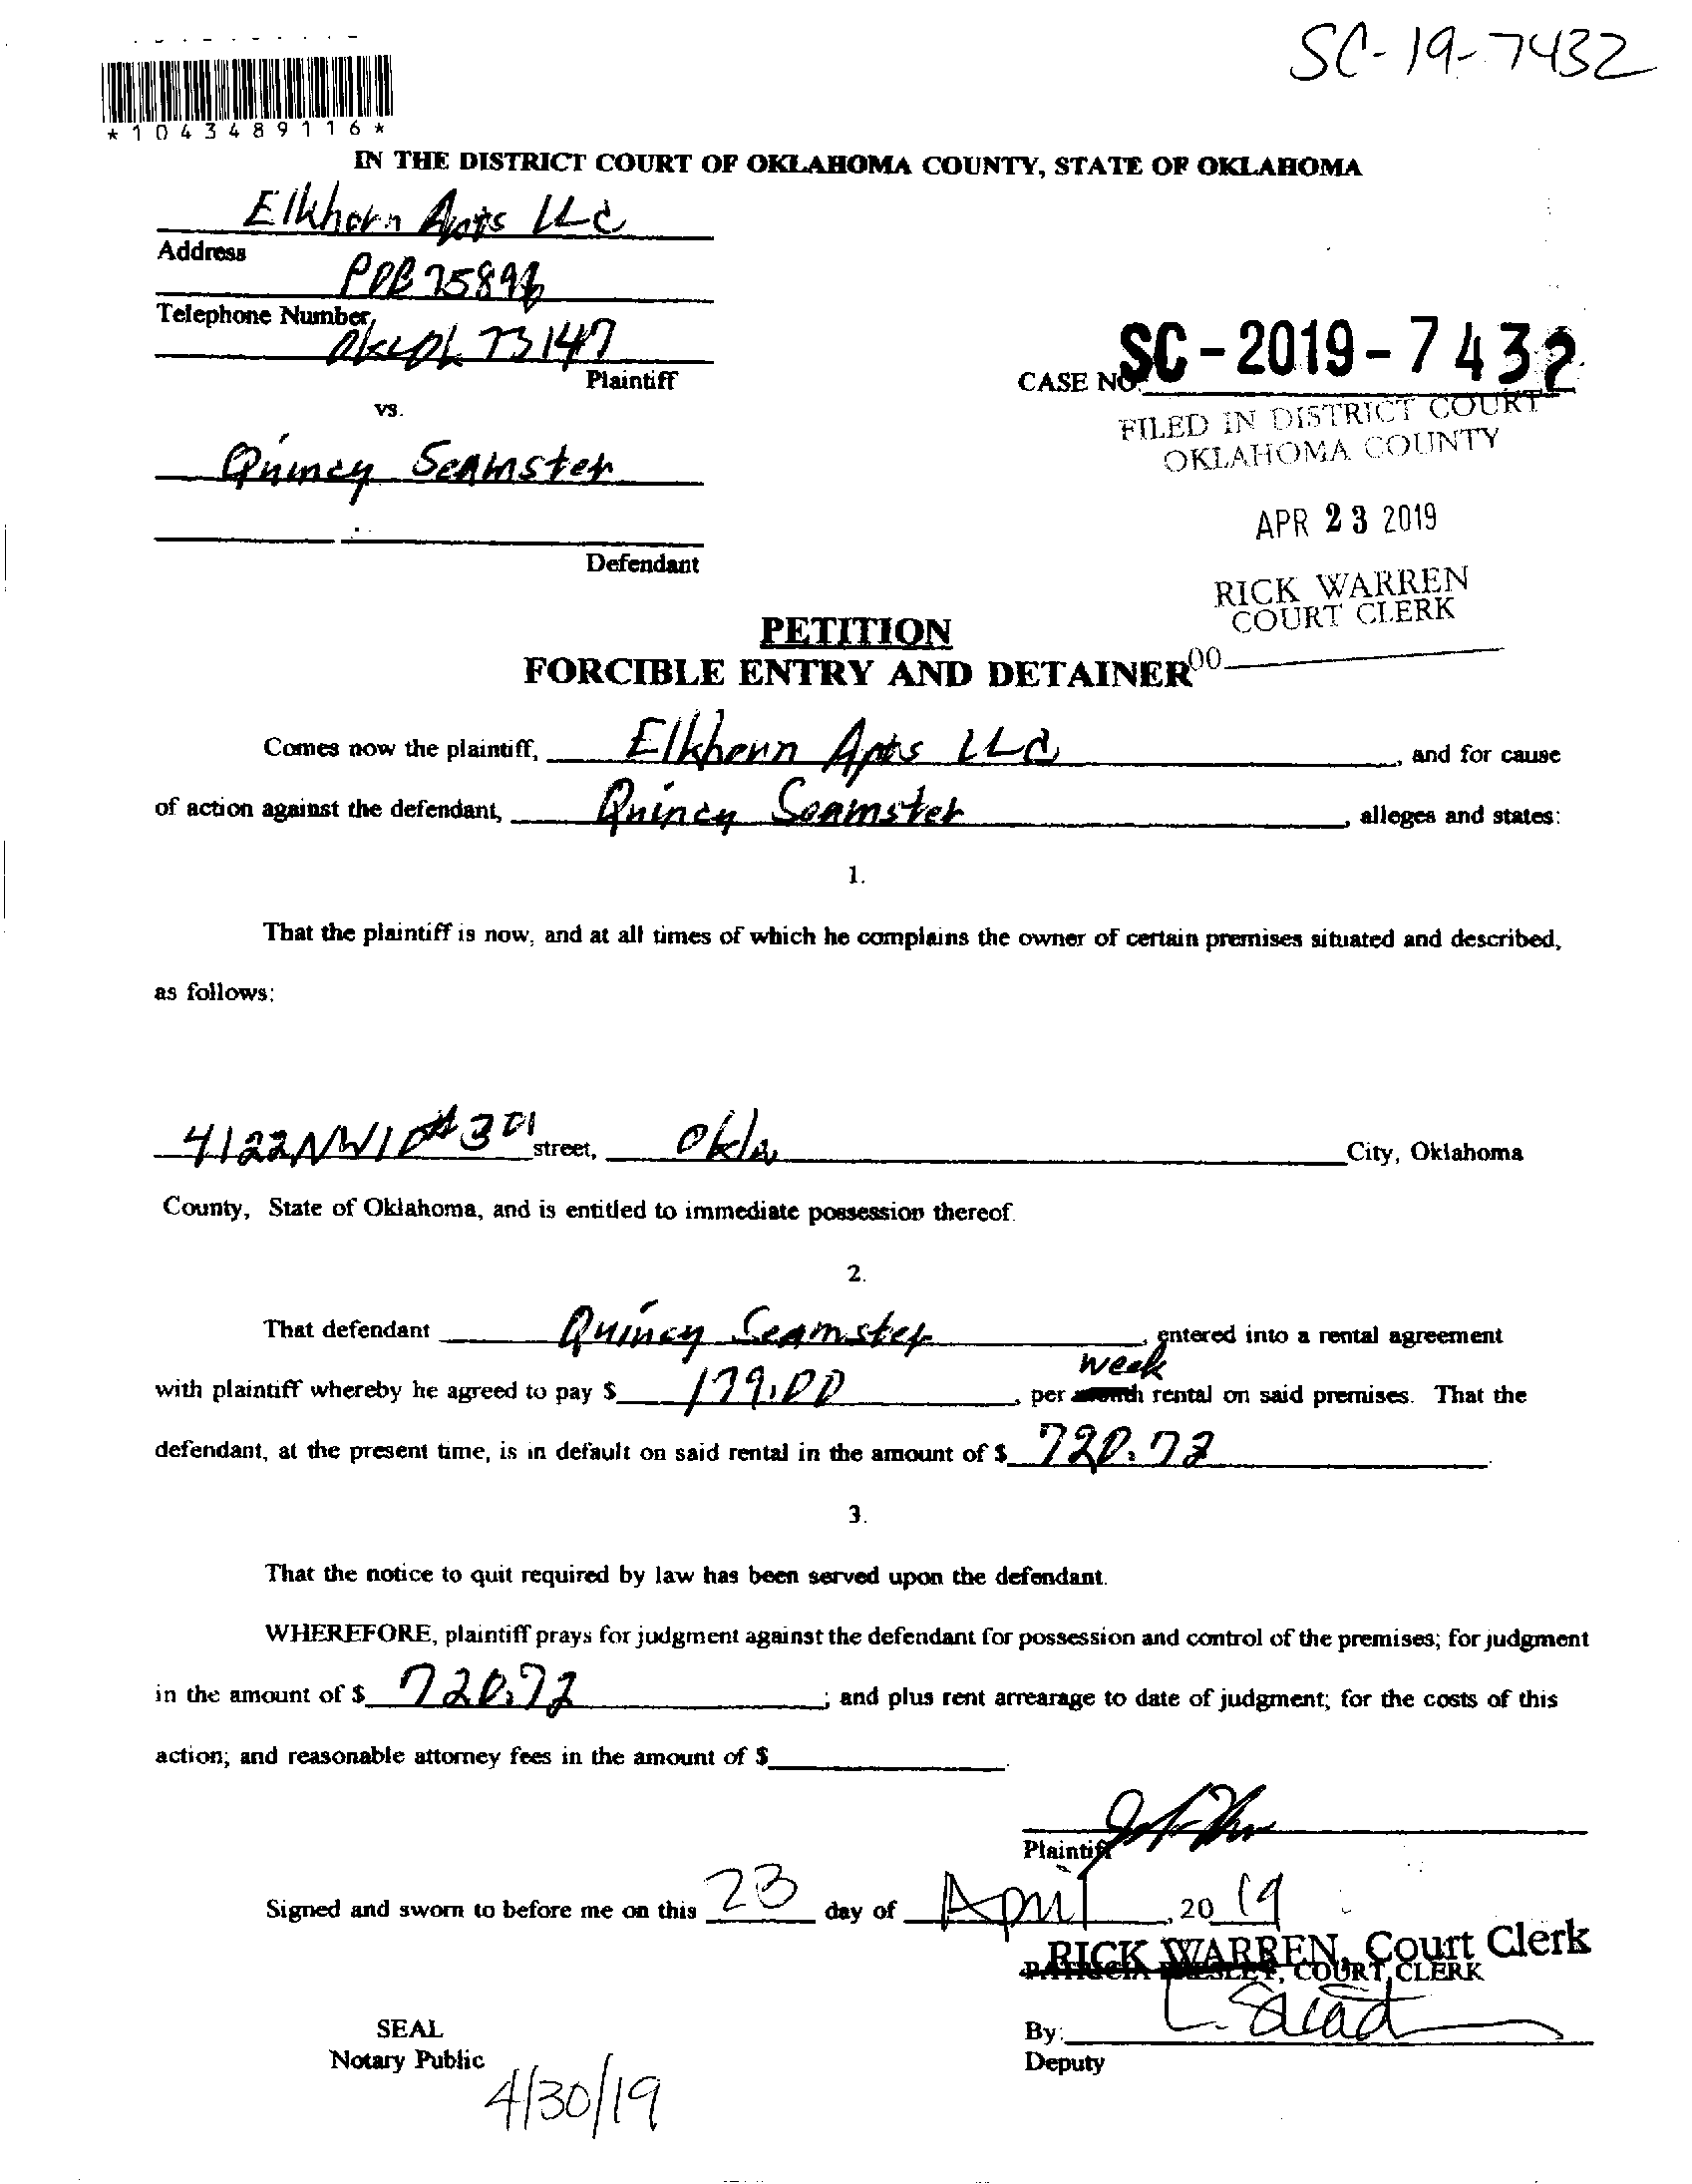 SC-19-7432
*1043489116*
IN THE DISTRICT COURT OF OKLAHOMA COUNTY, STATE OF OKLAHOMA
Elkhorn Apts LLC
Address
POB 75896
Telephone Number
Okc Ok 73147
Plaintiff
vs.
CASE NO. SC-2019-7432
FILED IN DISTRICT COURT
OKLAHOMA COUNTY
Quincy Seamster
APR 23 2019
Defendant
RICK WARREN
COURT CLERK
PETITION
FORCIBLE ENTRY AND DETAINER
Comes now the plaintiff, Elkhorn Apts LLC, and for cause
of action against the defendant, Quincy Seamster, alleges and states:
1.
That the plaintiff is now, and at all times of which he complains the owner of certain premises situated and described,
as follows:
4122 NW 10 #301 street, Okla City, Oklahoma
County, State of Oklahoma, and is entitled to immediate possession thereof.
2.
That defendant Quincy Seamster, entered into a rental agreement
week
with plaintiff whereby he agreed to pay $ 179.00, per month rental on said premises. That the
defendant, at the present time, is in default on said rental in the amount of $ 720.72.
3.
That the notice to quit required by law has been served upon the defendant.
WHEREFORE, plaintiff prays for judgment against the defendant for possession and control of the premises; for judgment
in the amount of $ 720.72; and plus rent arrearage to date of judgment; for the costs of this
action; and reasonable attorney fees in the amount of $
Plaintiff
Signed and sworn to before me on this 23 day of April, 2019
RICK WARREN, Court Clerk
PATRICIA PRESLEY, COURT CLERK
SEAL
By:
Notary Public
Deputy
4/30/19